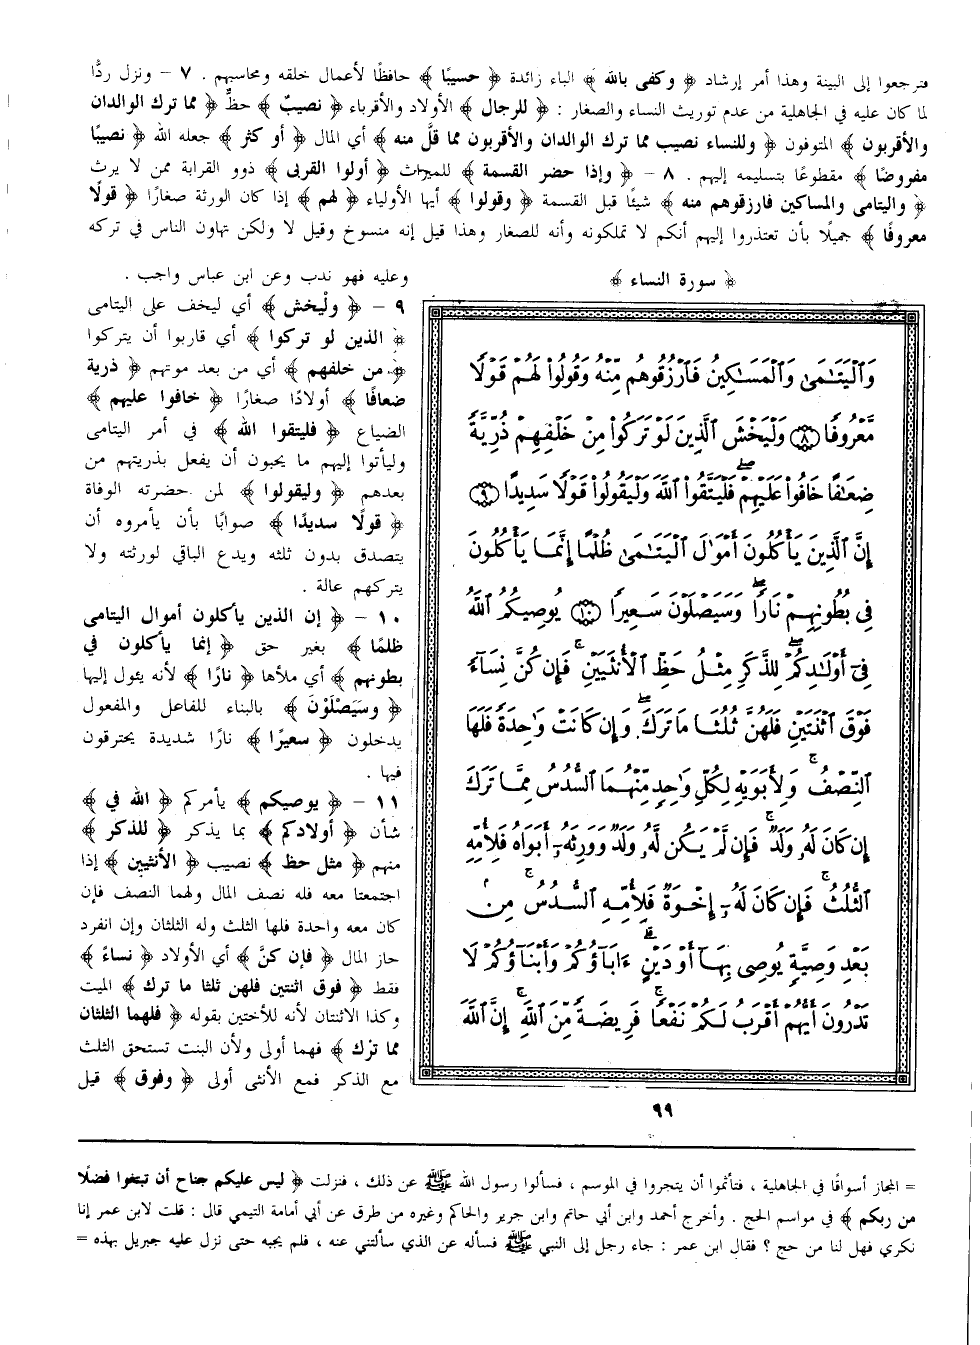 فترجعوا إلى البينة وهذا أمر إرشاد ﴿ وكفى بالله ﴾ الباء زائدة ﴿ حسيبًا ﴾ حافظًا لأعمال خلقه ومحاسبهم . ٧ – ونزل ردًّا
لما كان عليه في الجاهلية من عدم توريث النساء والصغار : ﴿ للرجال ﴾ الأولاد والأقرباء ﴿ نصيبٌ ﴾ حظٌّ ﴿ مما ترك الوالدان
والأقربون ﴾ المتوفون ﴿ وللنساء نصيب مما ترك الوالدان والأقربون مما قلَّ منه ﴾ أي المال ﴿ أو كثر ﴾ جعله الله ﴿ نصيبًا
مفروضًا ﴾ مقطوعًا بتسليمه إليهم . ٨ – ﴿ وإذا حضر القسمة ﴾ للميراث ﴿ أولوا القربى ﴾ ذوو القرابة ممن لا يرث
﴿ واليتامى والمساكين فارزقوهم منه ﴾ شيئًا قبل القسمة ﴿ وقولوا ﴾ أيها الأولياء ﴿ لهم ﴾ إذا كان الورثة صغارًا ﴿ قولًا
معروفًا ﴾ جميلًا بأن تعتذروا إليهم أنكم لا تملكونه وأنه للصغار وهذا قيل إنه منسوخ وقيل لا ولكن تهاون الناس في تركه
﴿ سورة النساء ﴾
وَٱلْيَتَـٰمَىٰ وَٱلْمَسَـٰكِينُ فَٱرْزُقُوهُم مِّنْهُ وَقُولُوا۟ لَهُمْ قَوْلًا
مَّعْرُوفًا ٨ وَلْيَخْشَ ٱلَّذِينَ لَوْ تَرَكُوا۟ مِنْ خَلْفِهِمْ ذُرِّيَّةً
ضِعَـٰفًا خَافُوا۟ عَلَيْهِمْ ۖ فَلْيَتَّقُوا۟ ٱللَّهَ وَلْيَقُولُوا۟ قَوْلًا سَدِيدًا ٩
إِنَّ ٱلَّذِينَ يَأْكُلُونَ أَمْوَٰلَ ٱلْيَتَـٰمَىٰ ظُلْمًا إِنَّمَا يَأْكُلُونَ
فِى بُطُونِهِمْ نَارًا ۖ وَسَيَصْلَوْنَ سَعِيرًا ١٠ يُوصِيكُمُ ٱللَّهُ
فِىٓ أَوْلَـٰدِكُمْ ۖ لِلذَّكَرِ مِثْلُ حَظِّ ٱلْأُنثَيَيْنِ ۚ فَإِن كُنَّ نِسَآءً
فَوْقَ ٱثْنَتَيْنِ فَلَهُنَّ ثُلُثَا مَا تَرَكَ ۖ وَإِن كَانَتْ وَٰحِدَةً فَلَهَا
ٱلنِّصْفُ ۚ وَلِأَبَوَيْهِ لِكُلِّ وَٰحِدٍ مِّنْهُمَا ٱلسُّدُسُ مِمَّا تَرَكَ
إِن كَانَ لَهُۥ وَلَدٌ ۚ فَإِن لَّمْ يَكُن لَّهُۥ وَلَدٌ وَوَرِثَهُۥٓ أَبَوَاهُ فَلِأُمِّهِ
ٱلثُّلُثُ ۚ فَإِن كَانَ لَهُۥٓ إِخْوَةٌ فَلِأُمِّهِ ٱلسُّدُسُ ۚ مِنۢ
بَعْدِ وَصِيَّةٍ يُوصِى بِهَآ أَوْ دَيْنٍ ۗ ءَابَآؤُكُمْ وَأَبْنَآؤُكُمْ لَا
تَدْرُونَ أَيُّهُمْ أَقْرَبُ لَكُمْ نَفْعًا ۚ فَرِيضَةً مِّنَ ٱللَّهِ ۗ إِنَّ ٱللَّهَ
٩٩
وعليه فهو ندب وعن ابن عباس واجب .
٩ – ﴿ ولْيخش ﴾ أي ليخف على اليتامى
﴿ الذين لو تركوا ﴾ أي قاربوا أن يتركوا
﴿ من خلفهم ﴾ أي من بعد موتهم ﴿ ذرية
ضعافًا ﴾ أولادًا صغارًا ﴿ خافوا عليهم ﴾
الضياع ﴿ فليتقوا الله ﴾ في أمر اليتامى
وليأتوا إليهم ما يحبون أن يفعل بذريتهم من
بعدهم ﴿ وليقولوا ﴾ لمن حضرته الوفاة
﴿ قولًا سديدًا ﴾ صوابًا بأن يأمروه أن
يتصدق بدون ثلثه ويدع الباقي لورثته ولا
يتركهم عالة .
١٠ – ﴿ إن الذين يأكلون أموال اليتامى
ظلمًا ﴾ بغير حق ﴿ إنما يأكلون في
بطونهم ﴾ أي ملأها ﴿ نارًا ﴾ لأنه يئول إليها
﴿ وسَيَصْلَوْنَ ﴾ بالبناء للفاعل والمفعول
يدخلون ﴿ سعيرًا ﴾ نارًا شديدة يحترقون
فيها .
١١ – ﴿ يوصيكم ﴾ يأمركم ﴿ الله في ﴾
شأن ﴿ أولادكم ﴾ بما يذكر ﴿ للذكر ﴾
منهم ﴿ مثل حظ ﴾ نصيب ﴿ الأنثيين ﴾ إذا
اجتمعتا معه فله نصف المال ولهما النصف فإن
كان معه واحدة فلها الثلث وله الثلثان وإن انفرد
حاز المال ﴿ فإن كنَّ ﴾ أي الأولاد ﴿ نساءً ﴾
فقط ﴿ فوق اثنتين فلهن ثلثا ما ترك ﴾ الميت
وكذا الاثنتان لأنه للأختين بقوله ﴿ فلهما الثلثان
مما ترك ﴾ فهما أولى ولأن البنت تستحق الثلث
مع الذكر فمع الأنثى أولى ﴿ وفوق ﴾ قيل
= المجاز أسواقًا في الجاهلية ، فتأثموا أن يتجروا في الموسم ، فسألوا رسول الله ﷺ عن ذلك ، فنزلت ﴿ ليس عليكم جناح أن تبتغوا فضلًا
من ربكم ﴾ في مواسم الحج . وأخرج أحمد وابن أبي حاتم وابن جرير والحاكم وغيره من طرق عن أبي أمامة التيمي قال : قلت لابن عمر إنا
نكري فهل لنا من حج ؟ فقال ابن عمر : جاء رجل إلى النبي ﷺ فسأله عن الذي سألتني عنه ، فلم يجبه حتى نزل عليه جبريل بهذه =